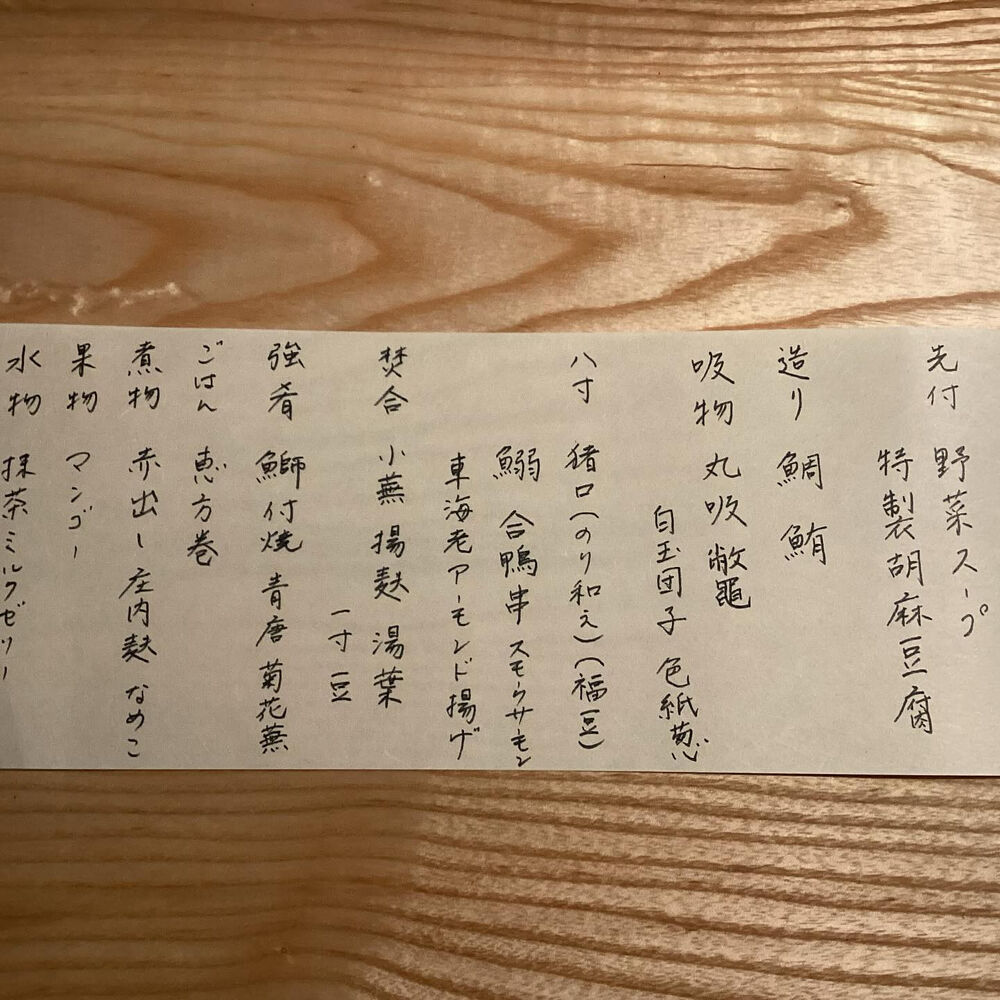 先付 野菜スープ
特製胡麻豆腐
造り 鯛 鮪
吸物 丸吸 敝黽
白玉団子 色紙葱
八寸 猪口(のり和え)(福豆)
鰯 合鴨串 スモークサーモン
車海老アーモンド揚げ
焚合 小蕪 揚麩 湯葉
一寸豆
強肴 鰤付焼 青唐 菊花蕪
ごはん 恵方巻
煮物 赤出し 庄内麩 なめこ
果物 マンゴー
水物 抹茶ミルクゼリー